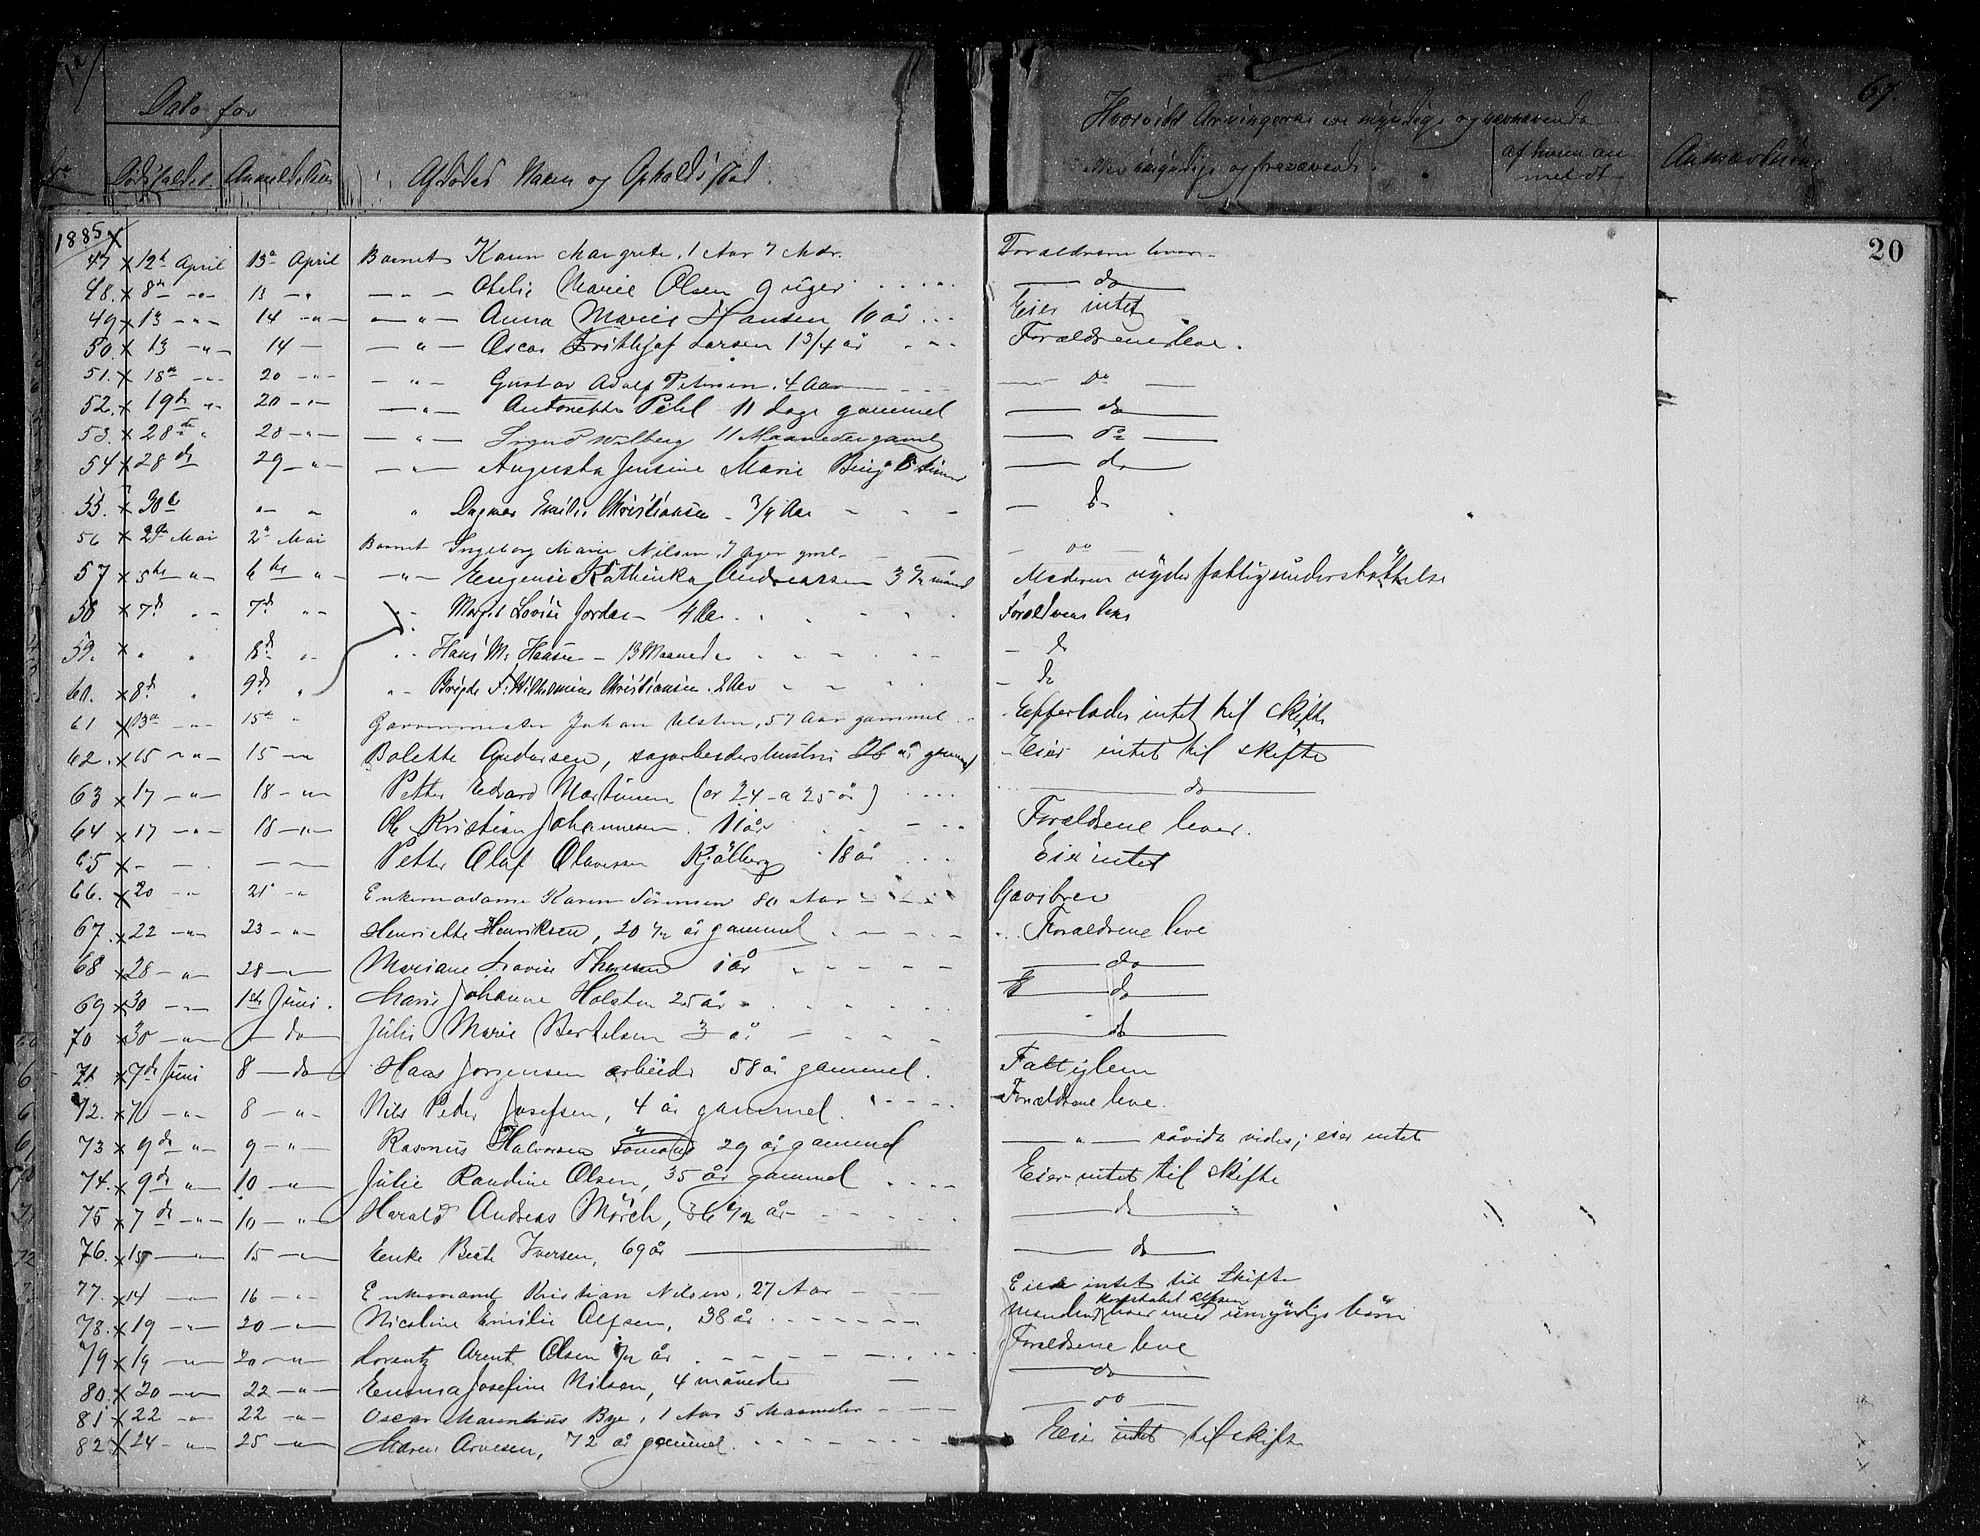 Dato for
Dødsfaldet. Anmeldelsen
Afdødes Navn og Opholdssted.
Hvorvidt Arvingerne ere myndige og nærværende
eller umyndige og fraværende.
af hvem an
meldt
Anmærkning
69.
20
1885
47 x 12te April 13de April Barnet Karen Margrete, 1 Aar 7 Mdr. Forældrene lever
48. x 8de — " — 13 — " — " — Marie Olsen 9 uger do
49 x 13 — " — 14 — " — — " — Anna Marie Hansen 10 år Eier intet
50. x 13 — " — 14 — — " — Oscar Frithjof Larsen 1 3/4 år Forældrene leve.
51. x 18de — " — 20 — " — — " — Gustav Adolf Petersen, 4 Aar do
52. x 19de " 20 — " — — " — Antonette Pihl 11 dage gammel do
53. x 28de " 28 — " — — " — Wilberg 11 Maaneder gaml do
54 x 28de 29 — " — — " — Augusta Jensine Marie do
55. x 30te " " " Dagmar Emilie Christiansen — 3/4 Aar do
56 x 2den Mai 2den Mai Barnet Ingeborg Marie Nilsen, 7 do
57 x 5te — " 6te " — " — Eugenie Kathinka Andreassen 3 1/2 måned Moderen nyder fattigunderstøttelse
58 x 7de " " 7de " " " Margit Lovise Jordan — 4 Aar Forældrene leve
59. x " " 8de " " Hans M. Hansen — 13 Maaneder do
60. x 8de " 9de " " F. Wilhelmine Christiansen. 2 Aar do
61 x 13de — " 15de " Garvermester Johan Holsten, 57 Aar gammel Efterlader intet til skifte
62. x 15 — " — 15 — " Bolette Andersen, sagarbeiderhustru 26 år gammel Eier intet til skifte
63 x 17 — " — 18 — " Petter Edvard Martinsen (or 24 a 25 år) do
64 x 17 — " — 18 — " — Ole Kristian Johannesen. 11 år Forældrene lever.
65 x — — — Petter Olaf Olavesen Kjølberg 18 år Eier intet
66. x 20 — " 21 — " Enkemadame Karen Sørensen 80 Aar Gavebrev
67. x 22 — " — 23 — " — Henriette Henriksen, 20 1/2 år gammel Forældrene leve
68 x 28 — " — 28 — " — Mariane Lovise Thoresen 1 år do
69 x 30 — " — 1ste Juni. Marie Johanne Holsten 25 år do
70 x 30 — " — — do Julie Marie Bertelsen 3 år do
71 x 7de Juni 8 — do Hans Jørgensen arbeider 58 år gammel. Fattiglem
72. x 7 — " — 8 — " — Nils Peder Josefsen, 4 år gammel. Forældrene leve.
73 x 9de " 9 — " — Rasmus Halvorsen sømand 29 år gammel — " — såvidt vides; eier intet
74. x 9de " — 10 — " — Julie Randine Olsen, 35 år gammel Eier intet til skifte
75 x 7de — " — 10 — " Harald Andreas Mørch, 36 1/2 år do
76. x 15 — " 15 — " — Enke Beate Iversen, 69 år do
77. x 14 — " 16 — " Enkemand Kristian Nilsen, 27 Aar Eier intet til Skifte
78. x 19 — " 20 — " — Nicoline Emilie Alfsen, 38 år Manden konstabel Alfsen lever med umyndige børn
79 x 19 — " — 20 — " — Lorentz Arent Olsen 1/2 år Forældrene leve
80. x 20 — " — 22 — " — Emma Josefine Nilsen, 4 måneder do
81 x 22 — " 22 — " — Oscar Marentius Bye, 1 Aar 5 Maaneder do
82. x 24 — " 25 — " — Maren Arvesen, 72 år gammel. Eier intet til skifte